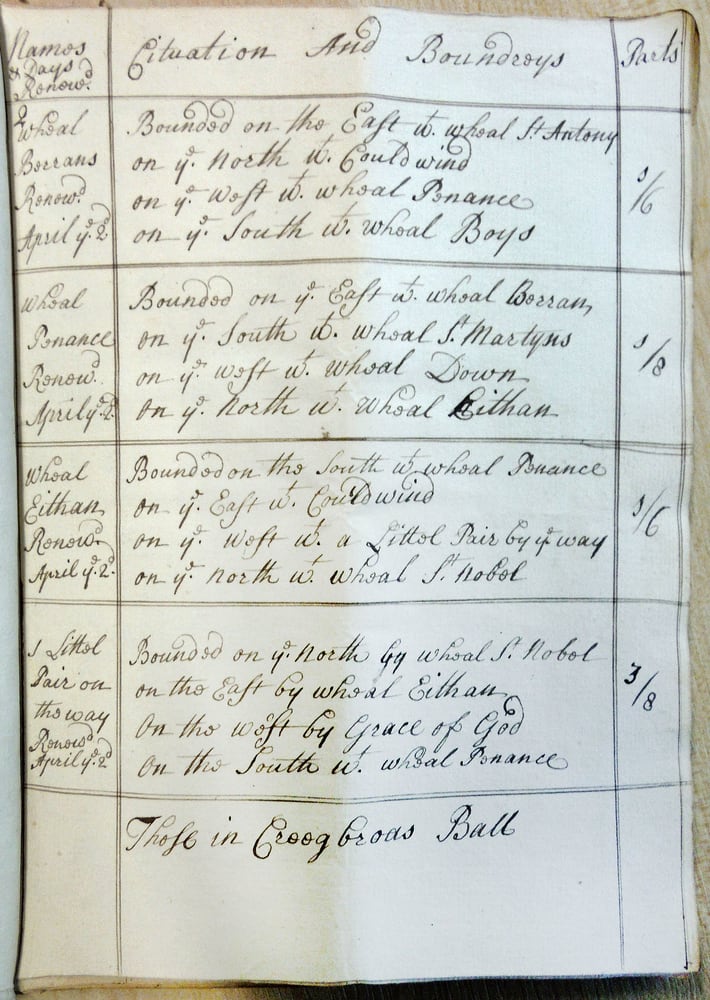 Names
& Days
Renew.d
Cituation And Boundreys
Parts
Wheal
Berrans
Renew.d
April y.e 2.d
Bounded on the East w.t wheal St Antony
on y.e North w.t Couldwind
on y.e West w.t wheal Penance
on y.e South w.t wheal Boys
1/6
Wheal
Penance
Renew.d
April y.e 2.d
Bounded on y.e East w.t wheal Berran,
on y.e South w.t wheal S.t Martyns
on y.e west w.t wheal Down
on y.e North w.t wheal Eithan
1/8
Wheal
Eithan
Renew.d
April y.e 2.d
Bounded on the South w.t wheal Penance
on y.e East w.t Couldwind
on y.e West w.t a Littel Pair by y.e way
on y.e North w.t wheal S.t Nobel
1/6
1 Littel
Pair on
the way
Renew.d
April y.e 2.d
Bounded on y.e North by wheal S.t Nobel
on the East by wheal Eithan
On the west by Grace of God
On the South w.t wheal Penance
3/8
Those in Creegbroas Ball